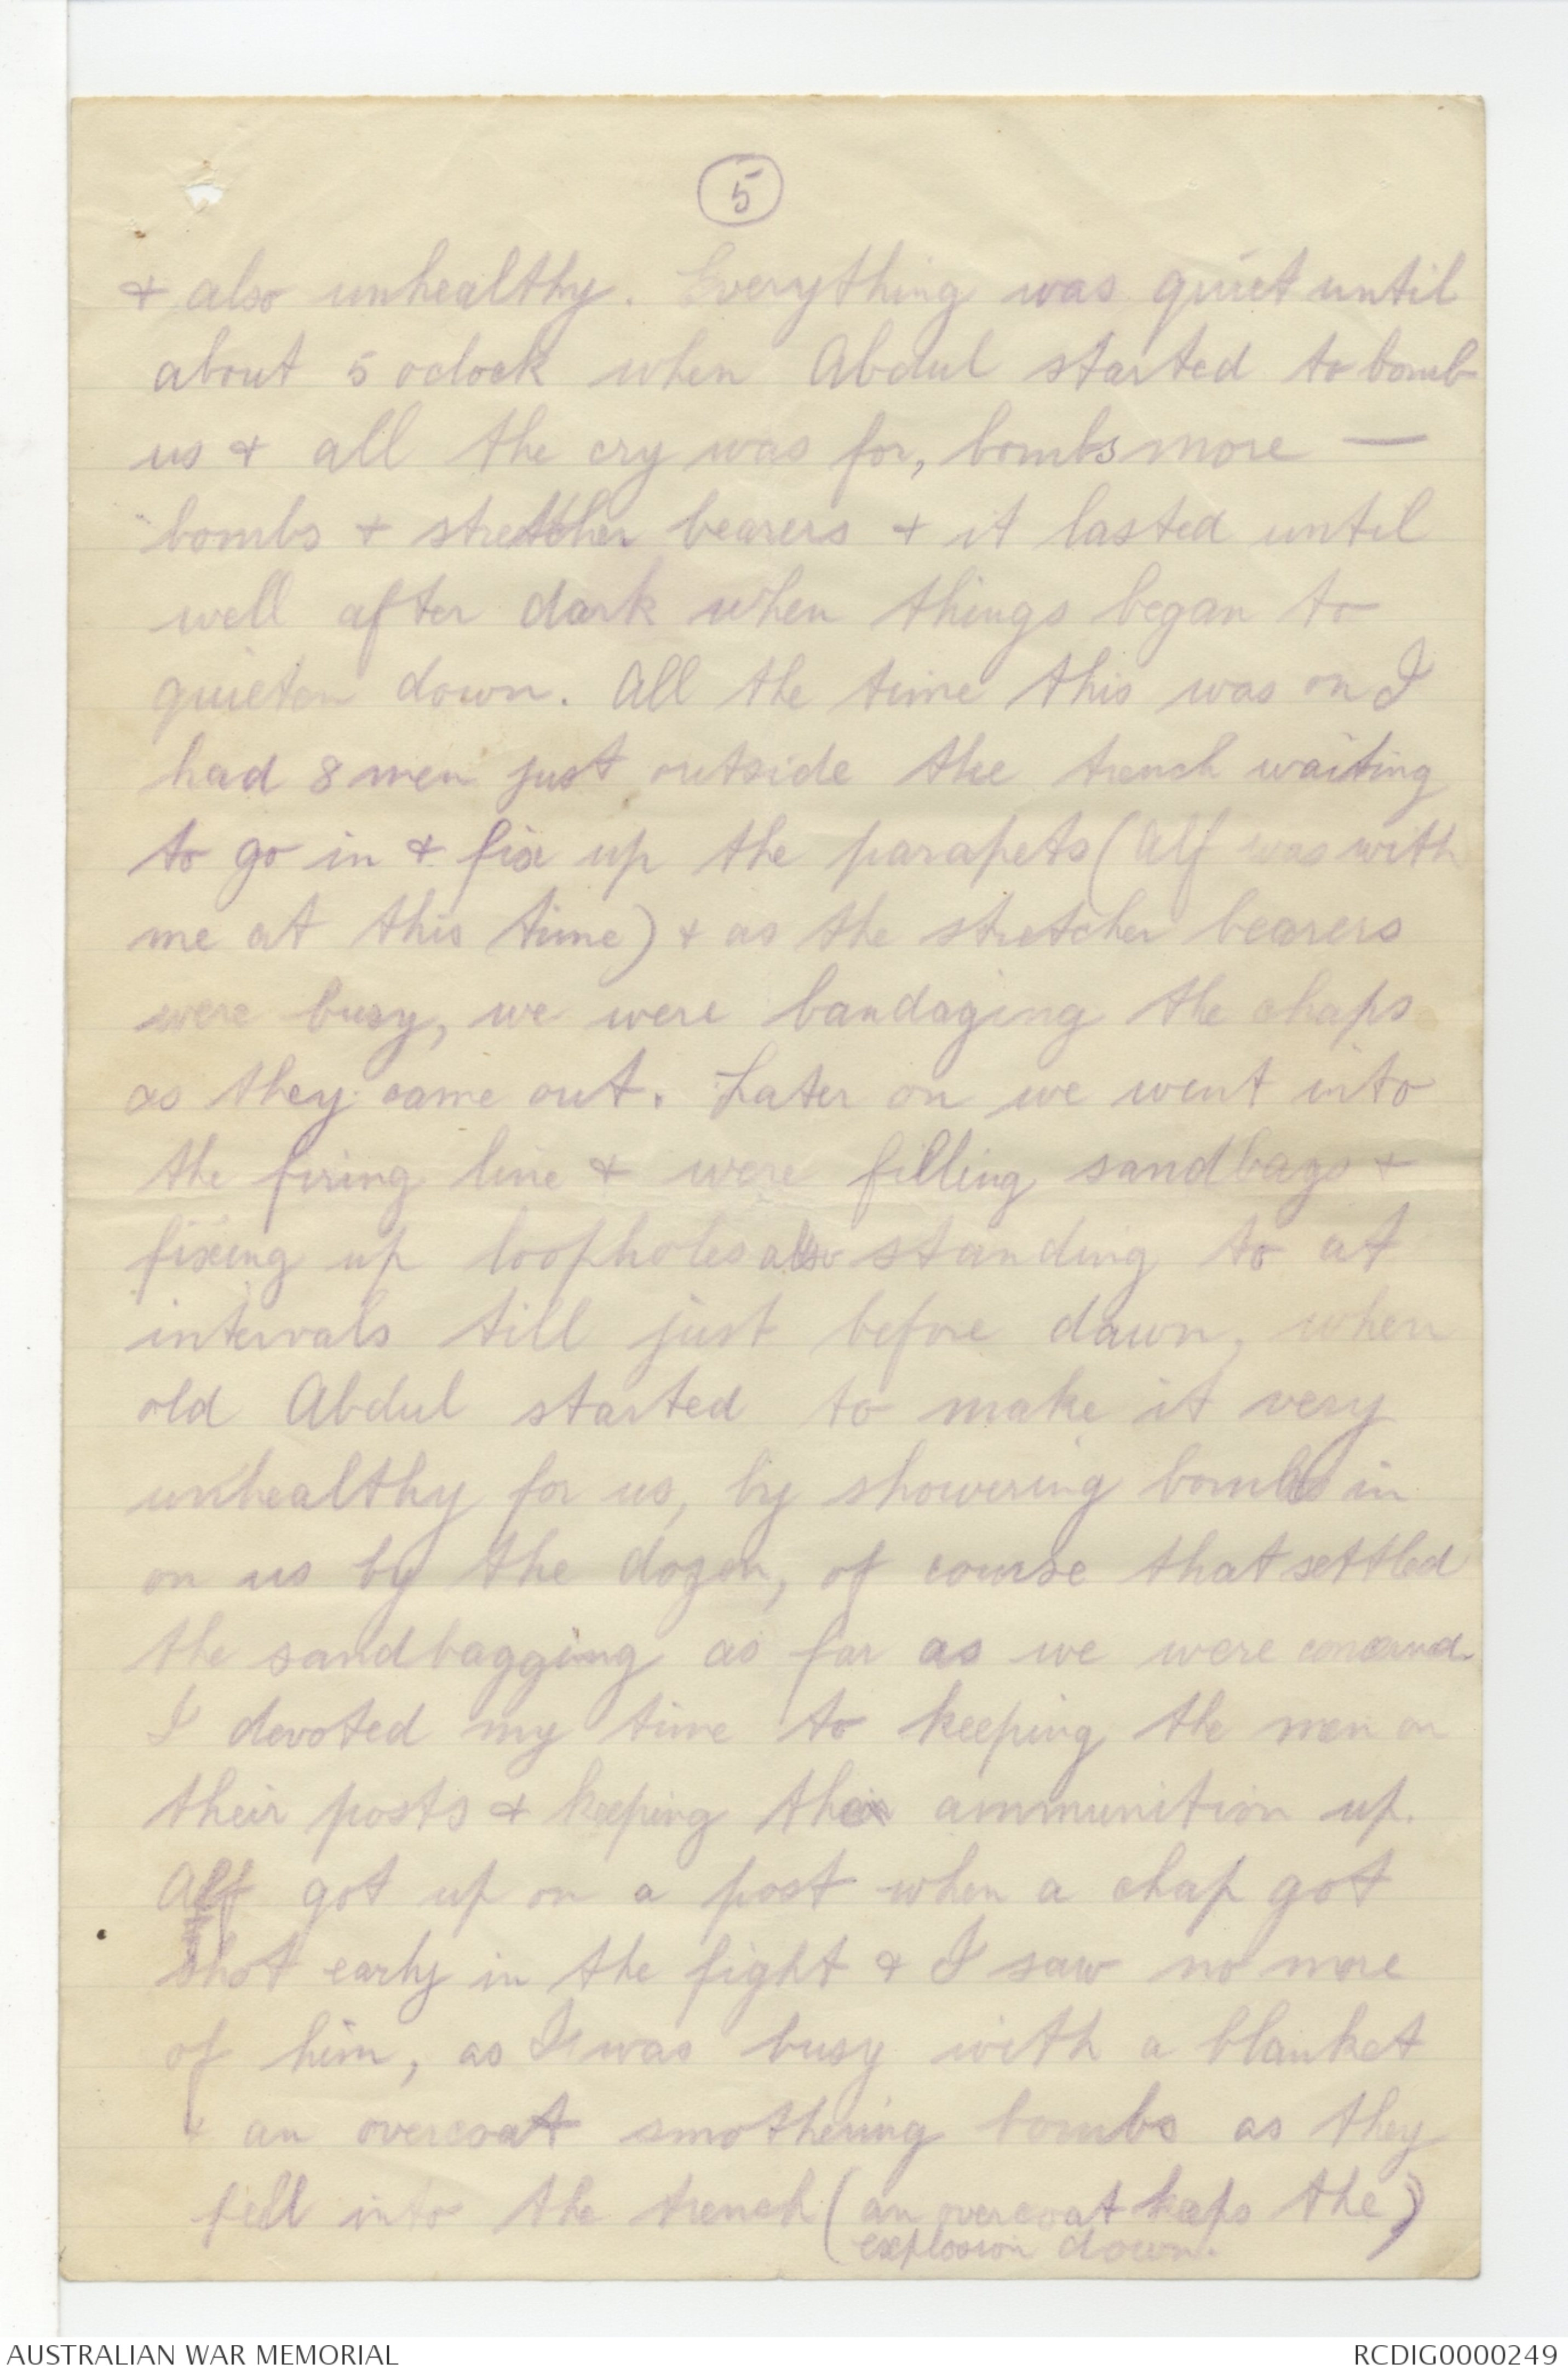 5
& also unhealthy. Everything was quiet until
about 5 oclock when Abdul started to bomb
us & all the cry was for, bombs more —
bombs & stretcher bearers & it lasted until
well after dark when things began to
quieten down. All the time this was on I
had 8 men just outside the trench waiting
to go in & fix up the parapets (Alf was with
me at this time) & as the stretcher bearers
were busy, we were bandaging the chaps
as they came out. Later on we went into
the firing line & were filling sandbags &
fixing up loopholes also standing to at
intervals till just before dawn, when
old Abdul started to make it very
unhealthy for us, by showering bombs in
on us by the dozen, of course that settled
the sandbagging as far as we were concerned.
I devoted my time to keeping the men on
their posts & keeping the ammunition up.
Alf got up on a post when a chap got
shot early in the fight & I saw no more
of him, as I was busy with a blanket
& an overcoat smothering bombs as they
fell into the trench (an overcoat keeps the)
explosion down.
AUSTRALIAN WAR MEMORIAL
RCDIG0000249